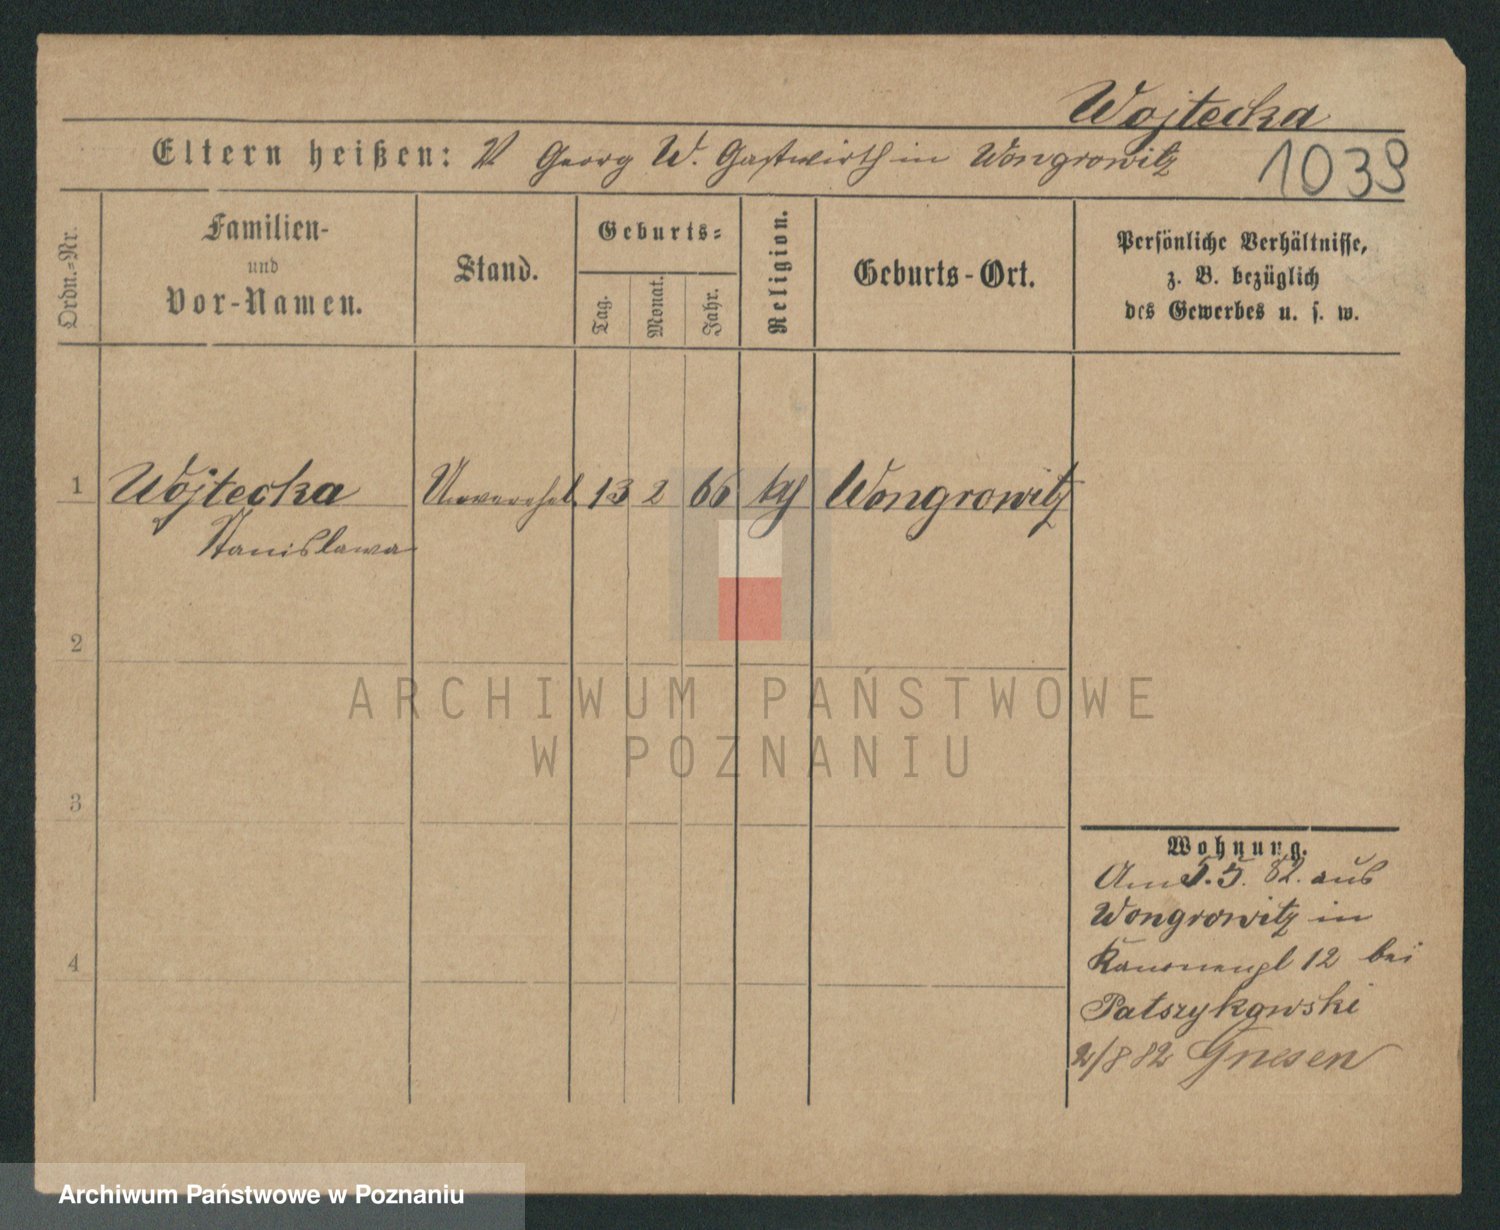 Wojtecka
Eltern heißen: V Georg W. Gastwirth in Wongrowitz
1039
Ordn.-Nr.
Familien-
und
Vor-Namen.
Stand.
Geburts-
Tag.
Monat.
Jahr.
Religion.
Geburts-Ort.
Persönliche Verhältnisse,
z. B. bezüglich
des Gewerbes u. s. w.
1 Wojtecka Unverehel 13 2 66 Wongrowitz
Stanislawa
2
3
4
Wohnung.
Am 5.5. 82. aus
Wongrowitz in
Kanonenpl 12 bei
Patszykowski
2/8 82 Gnesen
ARCHIWUM PAŃSTWOWE
W POZNANIU
Archiwum Państwowe w Poznaniu